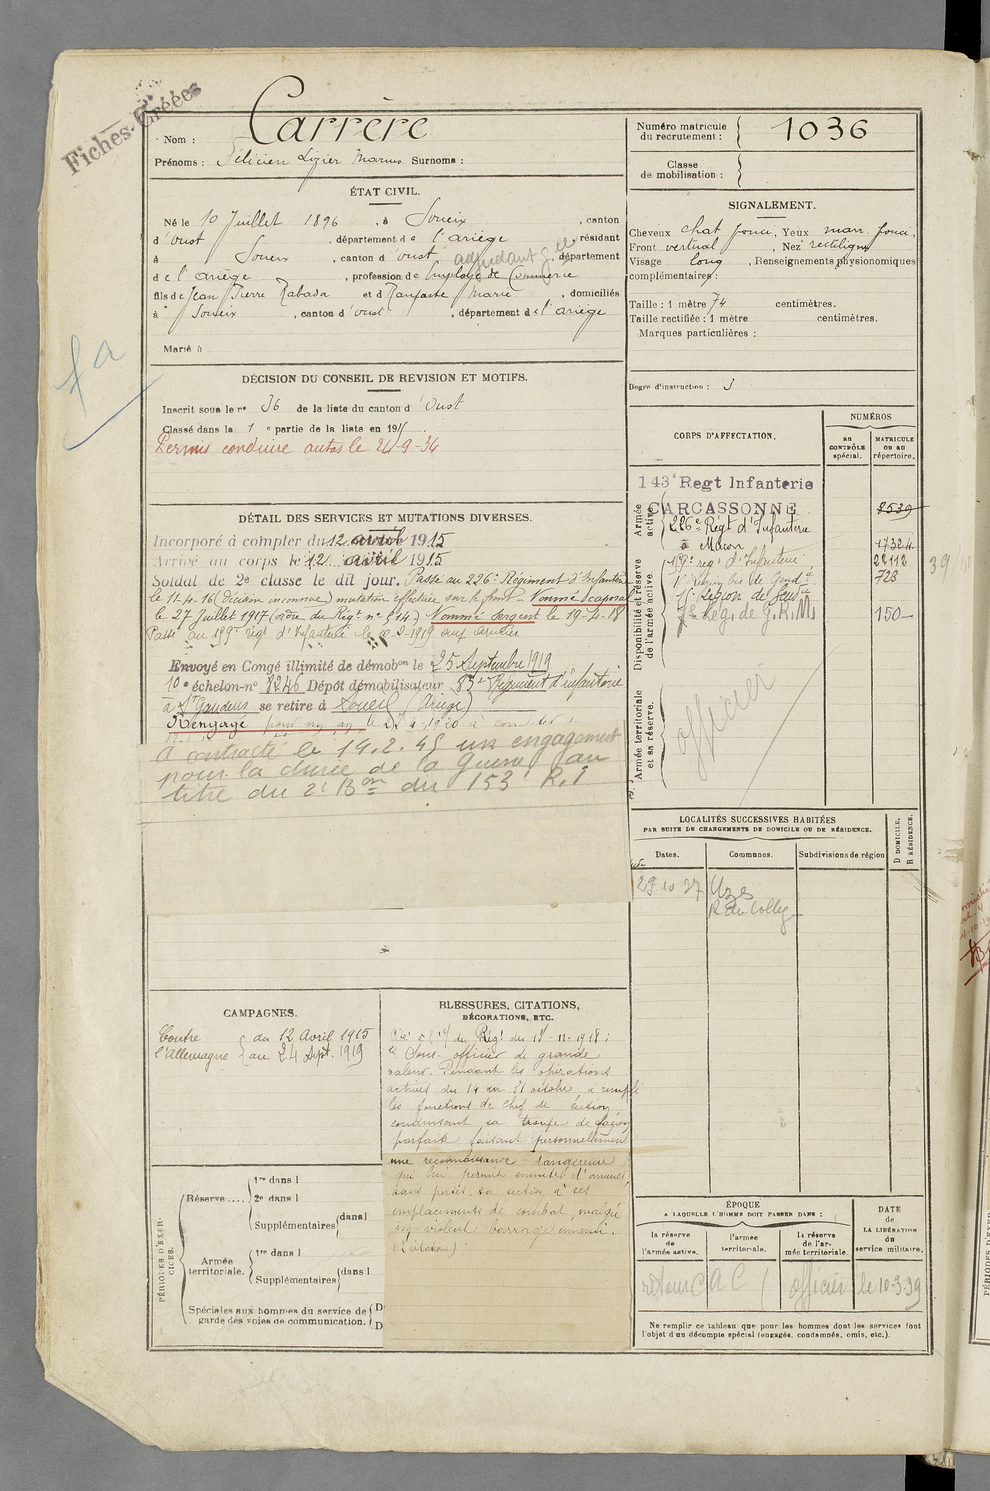 Fiches Créées
Nom : Carrère
Prénoms : Félicien Lizier Marius Surnoms :
Numéro matricule du recrutement : 1036
Classe de mobilisation :
ÉTAT CIVIL.
Né le 10 Juillet 1896, à Soueix, canton
d'Oust, département de l'ariège, résidant
à Soueix, canton d'oust, département
adjudant
de l'ariège, profession de Employé de Commerce
fils de Jean Pierre Rabada et d Marie, domiciliés
à Soueix, canton d'oust, département de l'ariège
Marié à
SIGNALEMENT.
Cheveux chat foncé, Yeux marr. foncé,
Front vertical, Nez rectiligne
Visage long, Renseignements physionomiques
complémentaires :
Taille : 1 mètre 74 centimètres.
Taille rectifiée : 1 mètre centimètres.
Marques particulières :
Degré d'instruction : 3
DÉCISION DU CONSEIL DE REVISION ET MOTIFS.
Inscrit sous le no 36 de la liste du canton d'Oust
Classé dans la 1e partie de la liste en 1915
Permis conduire autos le 24-9-34
DÉTAIL DES SERVICES ET MUTATIONS DIVERSES.
Incorporé à compter du 12 avril 1915
Arrivé au corps le 12 avril 1915
Soldat de 2e classe le dit jour. Passé au 226e Régiment d'Infanterie
le 11-4-16 (Décision inconnue) mutation effectuée sur le front. Nommé caporal
le 27 Juillet 1917 (ordre du Régt no 514) Nommé Sergent le 19-4-18
Passé au régt d'Infanterie le 1919 aux armées
Envoyé en Congé illimité de démobon le 25 Septembre 1919
10e échelon-no 8246 Dépôt démobilisateur 83e Régiment d'infanterie
à St Gaudens se retire à Soueix (Ariège)
Rengagé pour un an le 4-1920 à compter
A contracté le 14.2.45 un engagement
pour la durée de la Guerre au
titre du 2e Bon du 153e R.I
CORPS D'AFFECTATION.
NUMÉROS
AU CONTRÔLE spécial.
MATRICULE OU AU répertoire.
Armée active
143e Regt Infanterie
CARCASSONNE 8539
226e Régt d'Infanterie
à Macon 17324
Disponibilité et réserve de l'armée active.
régt d'Infanterie 22112
723
Légion de Gendie
7e Lég. de G.R.M. 150
39
Armée territoriale et sa réserve.
officier
LOCALITÉS SUCCESSIVES HABITÉES
PAR SUITE DE CHANGEMENTS DE DOMICILE OU DE RÉSIDENCE.
Dates. Communes. Subdivisions de région
D DOMICILE. R RÉSIDENCE.
29 10 37 Uzès
R du Collège
CAMPAGNES.
Contre l'Allemagne { du 12 Avril 1915
au 24 Sept. 1919
BLESSURES, CITATIONS,
DÉCORATIONS, ETC.
Cité du Régt du 18-11-1918 :
"Sous-officier de grande
valeur. Pendant les opérations
actives du 14 au 31 octobre, a rempli
les fonctions de chef de section,
conduisant sa troupe de façon
parfaite, faisant personnellement
une reconnaissance dangereuse
qui lui permit ensuite d'amener,
sans pertes, sa section à ses
emplacements de combat malgré
un violent barrage ennemi.
PÉRIODES D'EXERCICES.
Réserve ....
1re dans l
2e dans l
Supplémentaires dans l
Armée territoriale.
1re dans l
Supplémentaires dans l
Spéciales aux hommes du service de
garde des voies de communication.
D
D
ÉPOQUE
A LAQUELLE L'HOMME DOIT PASSER DANS :
la réserve de l'armée active.
l'armée territoriale.
la réserve de l'armée territoriale.
DATE de LA LIBÉRATION du service militaire.
retour CAC officier le 10-3-39
Ne remplir ce tableau que pour les hommes dont les services font
l'objet d'un décompte spécial (engagés, condamnés, omis, etc.).